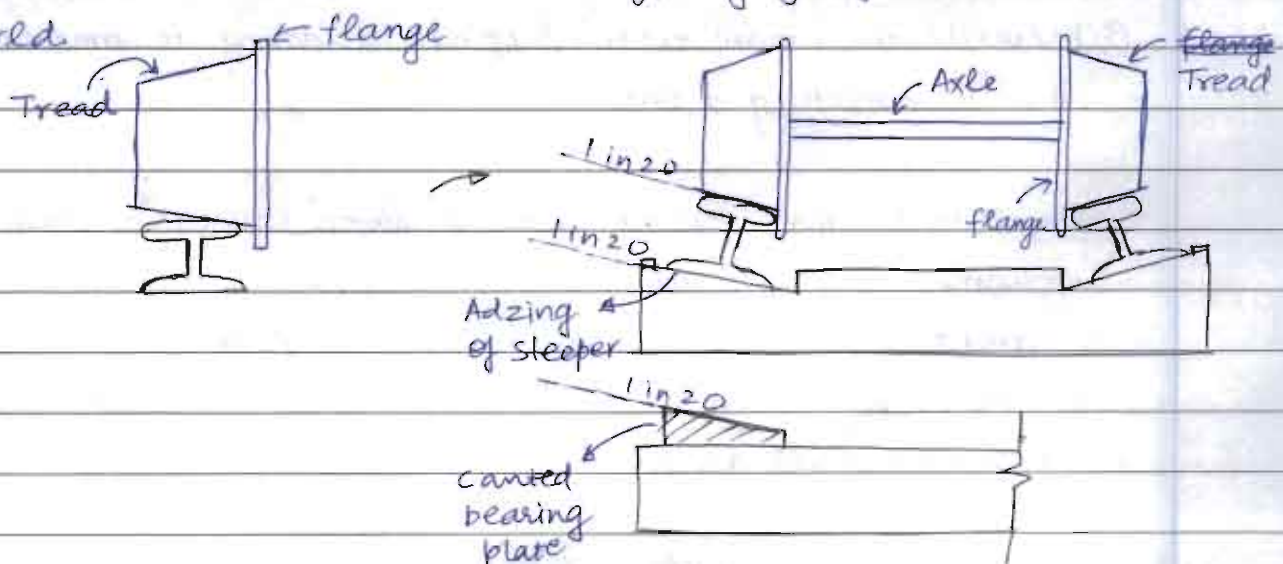 eld.
← flange
Tread
Axle
flange
Tread
1 in 20
1 in 20
flange
Adzing
of sleeper
1 in 20
Canted
bearing
plate